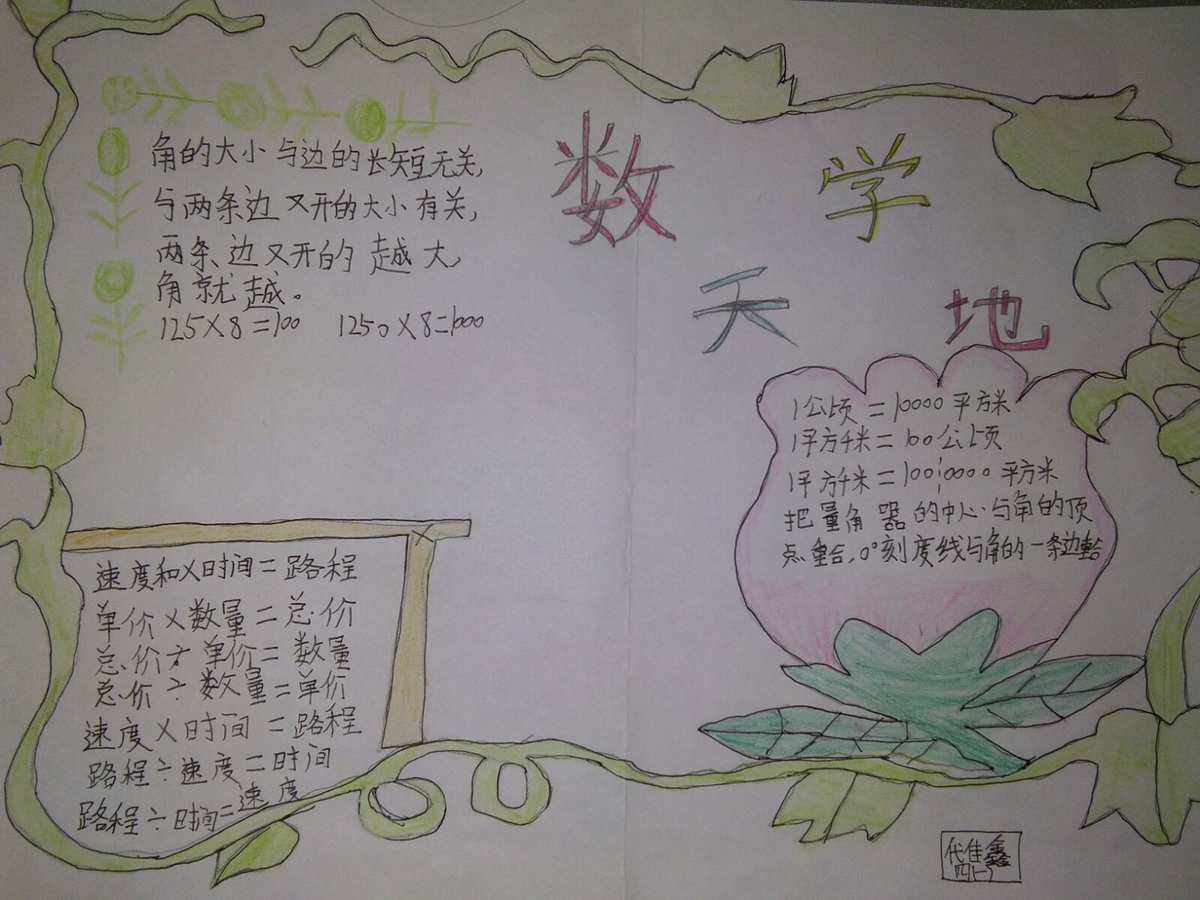 数学
天地
角的大小与边的长短无关,
与两条边叉开的大小有关,
两条边叉开的越大,
角就越。
125×8=100 1250×8=1000
1公顷=10000平方米
1平方千米=100公顷
1平方千米=1000000平方米
把量角器的中心与角的顶
点重合,0°刻度线与角的一条边重合
速度和×时间=路程
单价×数量=总价
总价÷单价=数量
总价÷数量=单价
速度×时间=路程
路程÷速度=时间
路程÷时间=速度
代佳鑫